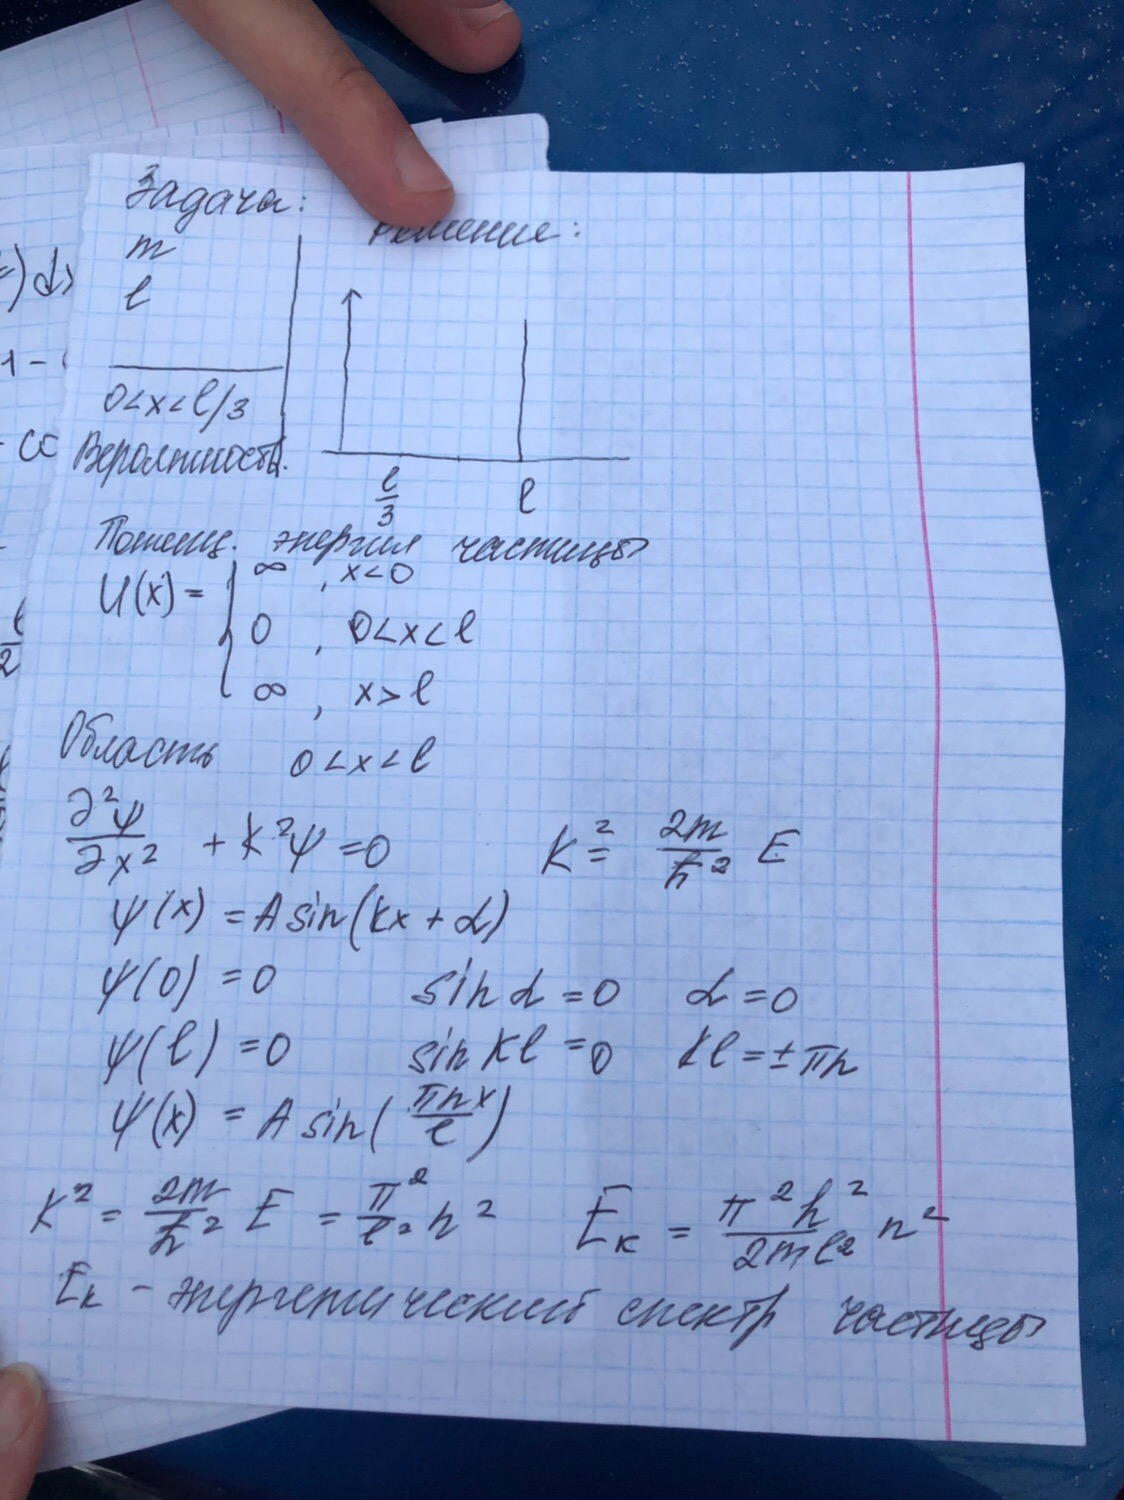 Задача:
m
l
0<x<l/3
Вероятность.
Решение:
l/3
l
Потенц. энергия частицы
U(x) = { ∞ , x<0
0 , 0<x<l
∞ , x>l
Область 0<x<l
∂²ψ/∂x² + k²ψ = 0 K² = 2m/ħ² E
ψ(x) = A sin(kx + α)
ψ(0) = 0 sin α = 0 α = 0
ψ(l) = 0 sin Kl = 0 kl = ± πn
ψ(x) = A sin(πnx/l)
K² = 2m/ħ² E = π²/l² n² Eк = π²ħ²/2ml² n²
Eк – энергетический спектр частицы